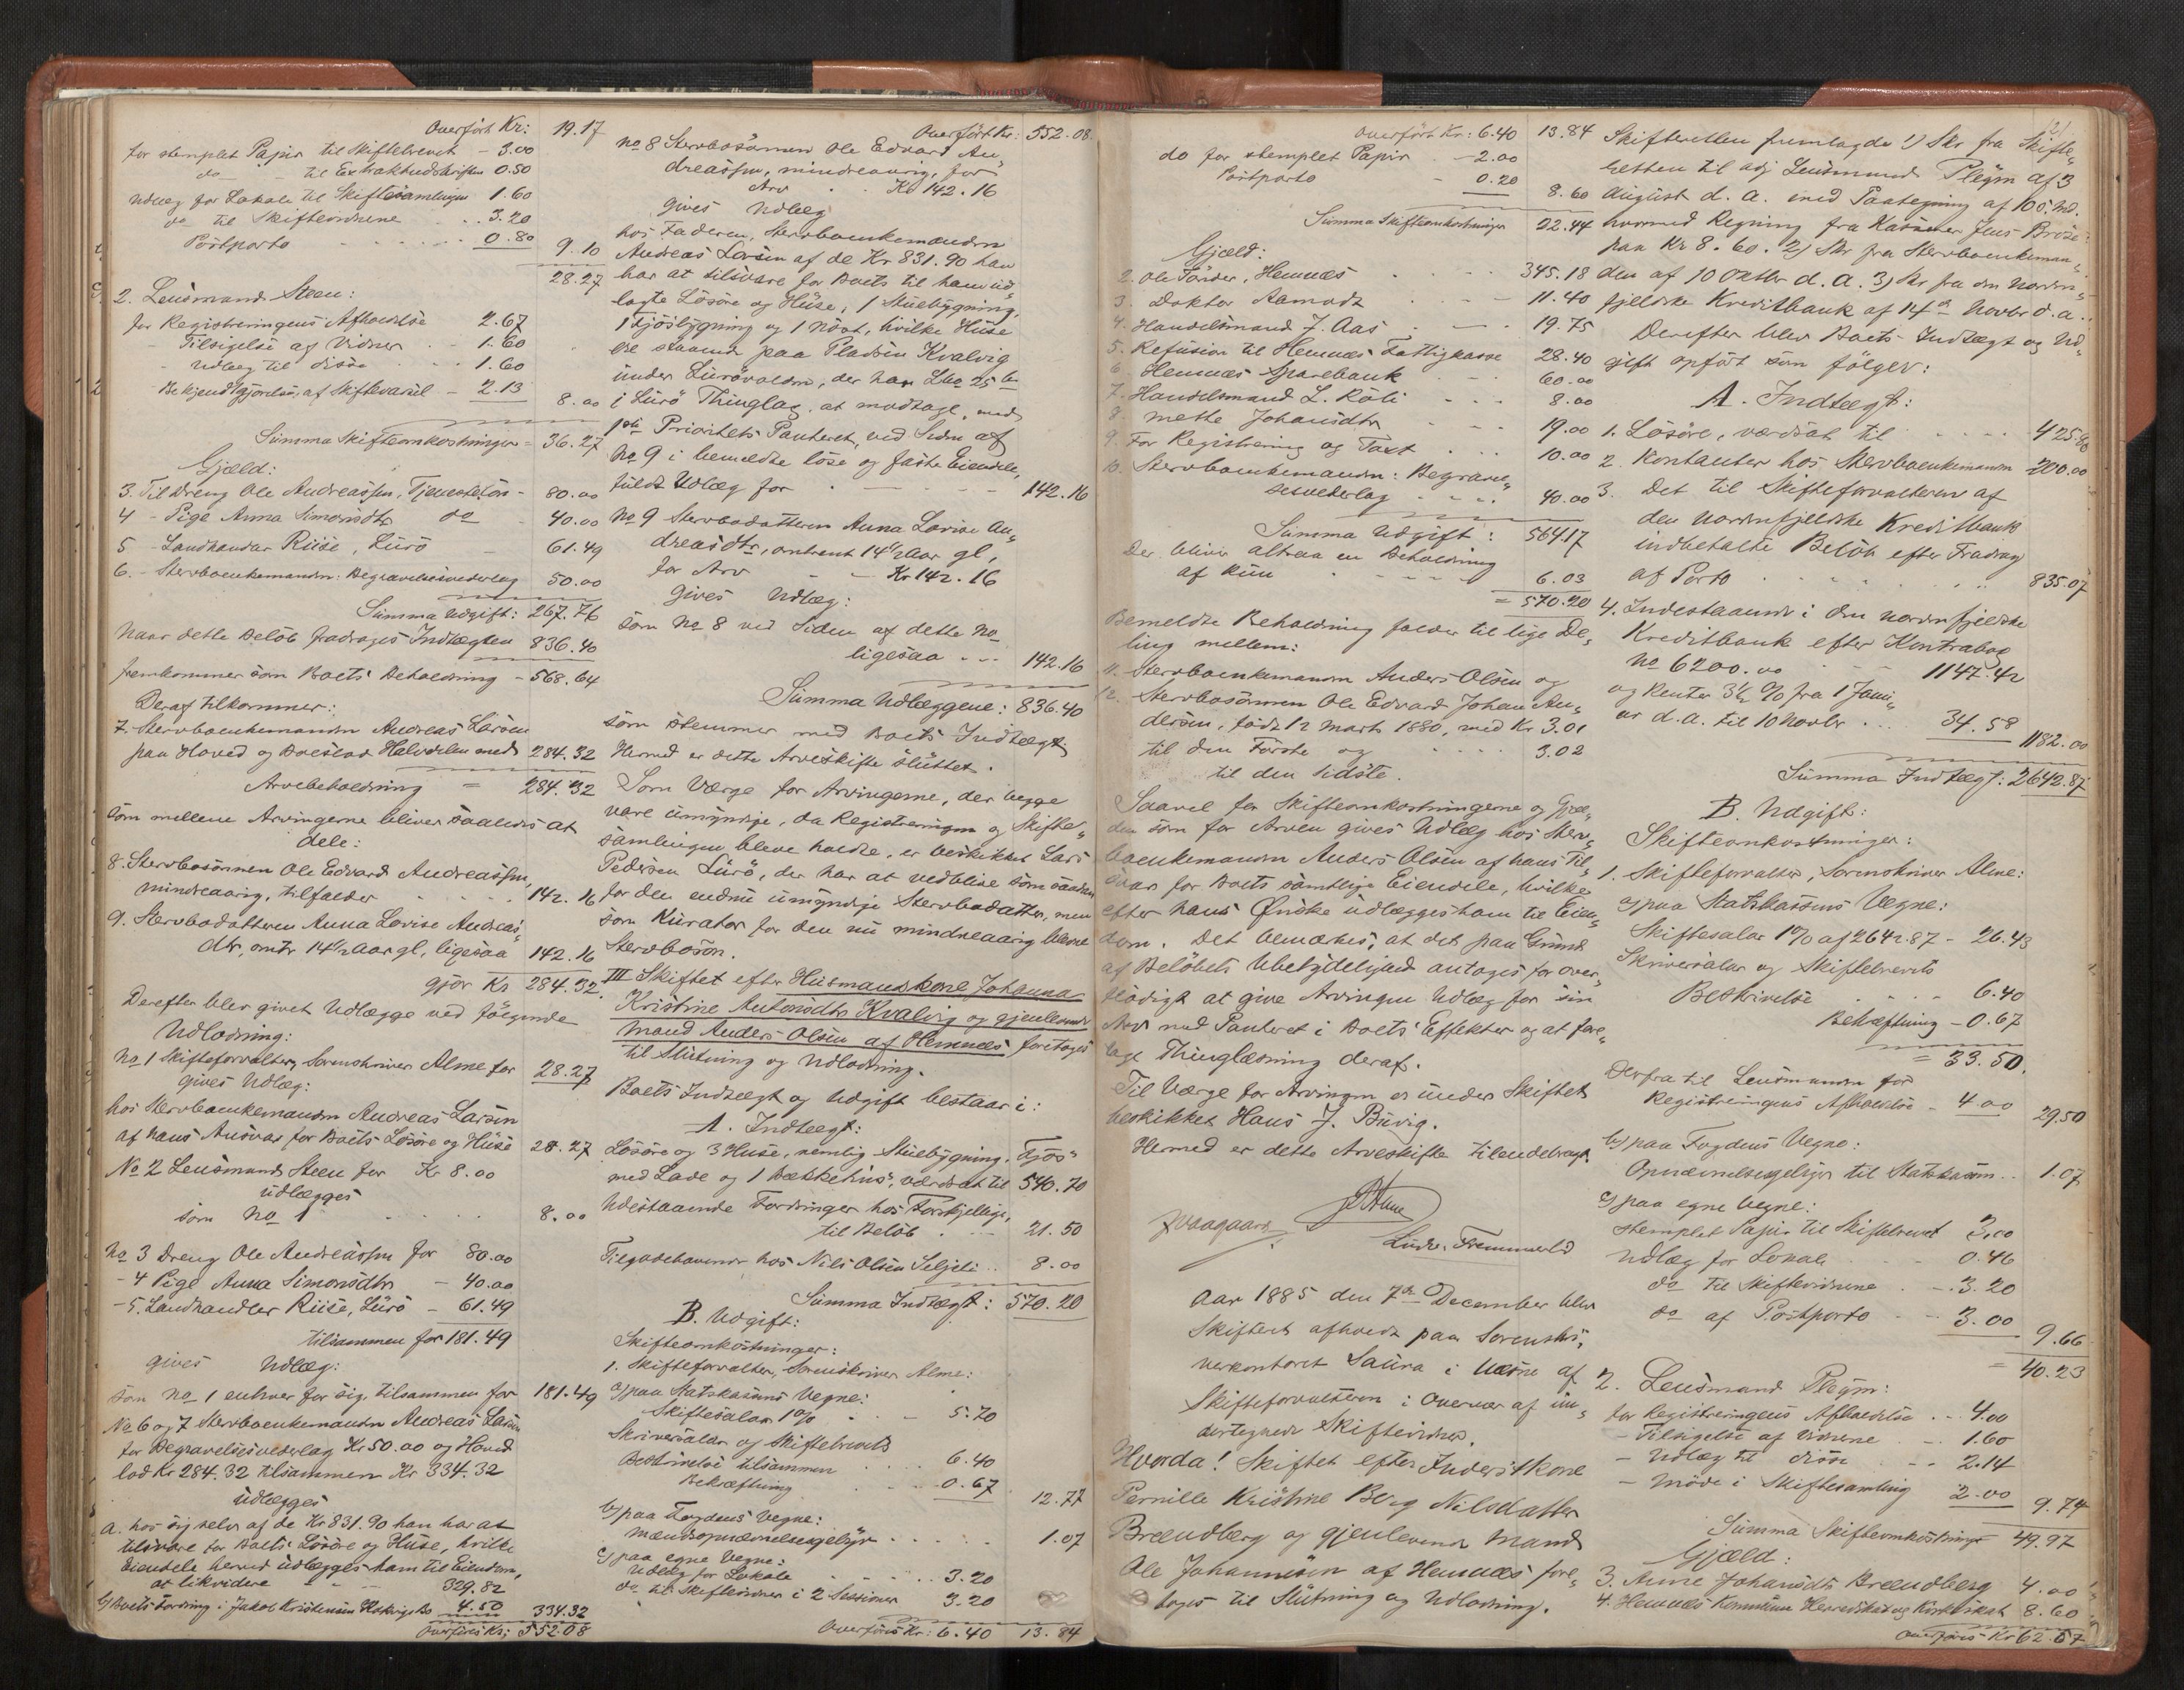 Overført Kr: 19.17
for stemplet Papir til Skiftebrevet - 3.00
do - til Extraktudskriften 0.50
Udlæg for Lokale til Skiftesamlingen 1.60
do til Skiftevidnerne . . 3.20
Postporto . . . . . . 0.80
9.10
28.27
2. Lensmand Steen:
for Registreringens Afholdelse 2.67
- Tilsigelse af Vidner . - 1.60
- Udlæg til disse - 1.60
- Bekjendtgjørelse af Skiftevarsel - 2.13
8.00
Summa Skifteomkostninger = 36.27
Gjæld:
3. Til Dreng Ole Andreassen, Tjenesteløn - 80.00
4 - Pige Anna Simonsdtr do - 40.00
5 - Landhandler Riise, Lurø - 61.49
6. - Stervboenkemanden: Begravelsesvederlag 50.00
Summa Udgift: 267.76
Naar dette Beløb fradrages Indtægten 836.40
fremkommer som Boets Beholdning - 568.64
Deraf tilkommer:
7. Stervboenkemanden Andreas Larsen
paa Hoved og Boeslod Halvdelen med 284.32
Arvebeholdning = 284.32
som mellem Arvingerne bliver saaledes at
dele:
8. Stervbosønnen Ole Edvard Andreassen,
mindreaarig, tilfalder . . . . 142.16
9. Stervbodatteren Anna Lovise Andreas-
dtr, omtr 14½ Aar gl, ligesaa 142.16
gjør Kr 284.32.
Derefter blev givet Udlægge ved følgende
Udlodning:
No 1 Skifteforvalter, Sorenskriver Alme for 28.27
gives Udlæg:
hos Stervboenkemanden Andreas Larsen
af hans Ansvar for Boets Løsøre og Huse 28.27
No 2 Lensmand Steen for Kr 8.00
udlægges
som No 1 . . . . . 8.00
No 3 Dreng Ole Andreassen for 80.00
- 4 Pige Anna Simonsdtr - 40.00
- 5. Landhandler Riise, Lurø - 61.49
tilsammen for 181.49
gives Udlæg:
som No 1 enhver for sig, tilsammen for 181.49
No 6 og 7 Stervboenkemanden Andreas Larsen
for Begravelsesvederlag Kr 50.00 og Hoved
lod Kr 284.32 tilsammen Kr 334.32
udlægges
a. hos sig selv af de Kr 831.90 han har at
tilsvare for Boets Løsøre og Huse, hvilke
Eiendele herved udlægges ham til Eiendom,
at likvidere - - 329.82
b) Boets Fordring i Jakob Kristensen 4.50
334.32
Overføres Kr: 552.08
Overført Kr: 552.08.
No 8 Stervbosønnen Ole Edvard An-
dreassen, mindreaarig, for
Arv . . Kr 142.16
gives Udlæg
hos Faderen, Stervboenkemanden
Andreas Larsen af de Kr 831.90 han
har at tilsvare for Boets til ham ud-
lagte Løsøre og Huse, 1 Stuebygning,
1 Fjøsbygning og 1 Nøst, hvilke Huse
ere staaende paa Pladsen Kvalvig
under Lurøvalen, der har
i Lurø Thinglag, at modtage, med
1ste Prioritets Panteret, ved Siden af
No 9 i bemeldte løse og faste Eiendele,
fuldt Udlæg for . - - - - 142.16
No 9 Stervbodatteren Anna Lovise An-
dreasdtr, omtrent 14½ Aar gl,
for Arv - - Kr 142.16
gives Udlæg:
som No 8 ved Siden af dette No
ligesaa - - - 142.16
Summa Udlæggene: 836.40
som stemmer med Boets Indtægt.
Hermed er dette Arveskifte sluttet.
Som Værge for Arvingerne, der begge
vare umyndige, da Registreringen og Skifte-
samlingen bleve holdte, er beskikket Lars
Pedersen Lurø, der har at vedblive som saadan
for den endnu umyndige Stervbodatter, men
som Kurator for den nu mindreaarig blevne
Stervbosøn.
III Skiftet efter Husmandskone Johanna
Kristine Antonsdtr Kvalvig og gjenlevende
Mand Anders Olsen af Hemnæs foretages
til Slutning og Udlodning.
Boets Indtægt og Udgift bestaar i:
A. Indtægt:
Løsøre og 3 Huse, nemlig Stuebygning, Fjøs
med Lade og 1 Bækkehus, værdsat til 540.70
Udestaaende Fordringer hos Forskjellige,
til Beløb . - - 21.50
Tilgodehavende hos Nils Olsen Seljeli . . 8.00
Summa Indtægt: 570.20
B. Udgift:
Skifteomkostninger:
1. Skifteforvalter, Sorenskriver Alme:
a) paa Statskassens Vegne:
Skiftesalar 1% . . - 5.70
Skriversalar og Skiftebrevets
Beskrivelse tilsammen . . . . 6.40
Bekræftning . . - 0.67
12.77
b) paa Fogdens Vegne:
Mændsopnævnelsesgebyr . . . . . 1.07
c) paa egne Vegne:
Udlæg for Lokale . . . . 3.20
do til Skiftevidner i 2 Sessioner 3.20
Overføres Kr: 6.40 13.84
Overført Kr: 6.40 13.84
do for stemplet Papir - 2.00
Postporto - 0.20
8.60
Summa Skifteomkostninger 22.44
Gjæld:
2. Ole Tønder, Hemnæs . . - 345.18
3. Doktor Aamodt . . - 11.40
4. Handelsmand J. Aas . - - 19.75
5. Refusion til Hemnæs Fattigkasse 28.40
6. Hemnæs Sparebank . - - 60.00
7. Handelsmand L. Røli - - - 8.00
8. Mette Johansdtr - - - 19.00
9. For Registrering og Taxt . . . 10.00
10. Stervboenkemanden: Begravel-
sesvederlag - - - - 40.00
Summa Udgift: 564.17
Der bliver altsaa en Beholdning
af kun - - - - - 6.03
= 570.20
Bemeldte Beholdning falder til lige De-
ling mellem:
11. Stervboenkemanden Anders Olsen og
12. Stervbosønnen Ole Edvard Johan An-
dersen, født 12 Marts 1880, med Kr 3.01
til den Første og . . . . 3.02
til den Sidste.
Saavel for Skifteomkostningerne og Gjæl-
den som for Arven gives Udlæg hos Sterv-
boenkemanden Anders Olsen af hans Til-
svar for Boets samtlige Eiendele, hvilke
efter hans Ønske udlægges ham til Eien-
dom. Det bemærkes, at det paa Grund
af Beløbets Ubetydelighed antages for over-
flødigt at give Arvingen Udlæg for sin
Arv med Panteret i Boets Effekter og at fore-
tage Thinglæsning deraf.
Til Værge for Arvingen er under Skiftet
beskikket Hans J. Buvig.
Hermed er dette Arveskifte tilendebragt.
Alme
Aar 1885 den 7de December blev
Skifteret afholdt paa Sorenskri-
verkontoret Saura i Næsne af
Skifteforvalteren i Overvær af un-
dertegnede Skiftevidner.
Hvorda! Skiftet efter Inderstkone
Pernille Kristine Berg Nilsdatter
Brændberg og gjenlevende Mand
Ole Johannesen af Hemnæs fore-
tages til Slutning og Udlodning.
Skifteretten fremlagde 1) Skr fra Skifte-
retten til adj Lensmand Pleym af 3
August d. A. med Paategning af 10 s. Md.
hvormed Regning fra Kasserer Jens
paa Kr 8.60. 2) Skr fra Stervboenkeman-
den af 10 Oktbr d. A. 3) Skr fra den Norden-
fjeldske Kreditbank af 14de Novbr d. A.
Derefter blev Boets Indtægt og Ud-
gift opført som følger:
A. Indtægt:
1. Løsøre, værdsat til . . . . 425.80
2. Kontanter hos Stervboenkemanden 200.00
3. Det til Skifteforvalteren af
den Nordenfjeldske Kreditbank
indbetalte Beløb efter Fradrag
af Porto . . . . . 835.07
4. Indestaaende i den Nordenfjeldske
Kreditbank efter Kontrabog
No 6200.00 . . . 1147.42
og Renter 3½ % fra 1 Janu-
ar d. A. til 10 Novbr . . . 34.58
1182.00
Summa Indtægt: 2642.87
B. Udgift:
Skifteomkostninger:
1. Skifteforvalter, Sorenskriver Alme:
a) paa Statskassens Vegne:
Skiftesalar 1% af 2642.87 - 26.43
Skriversalar og Skiftebrevets
Beskrivelse . . . - 6.40
Bekræftning - 0.67
= 33.50.
Derfra til Lensmanden for
Registreringens Afholdelse - 4.00
29.50
b) paa Fogdens Vegne:
Opnævnelsesgebyr til Statskassen . . 1.07
c) paa egne Vegne:
stemplet Papir til Skiftebrevet 3.00
Udlæg for Lokale - - 0.46
do til Skiftevidnerne . - 3.20
do af Postporto - - 3.00
9.66
= 40.23
2. Lensmand Pleym:
for Registreringens Afholdelse . . 4.00
- Tilsigelse af Vidnerne . - 1.60
- Udlæg til disse - - 2.14
- Møde i Skiftesamling 2.00
9.74
Summa Skifteomkostninger 49.97
Gjæld:
3. Anne Johansdtr Brændberg 4.00
4. Hemnæs Kommune Herredskat og Kirkeskat 8.60
Overføres Kr 62.57